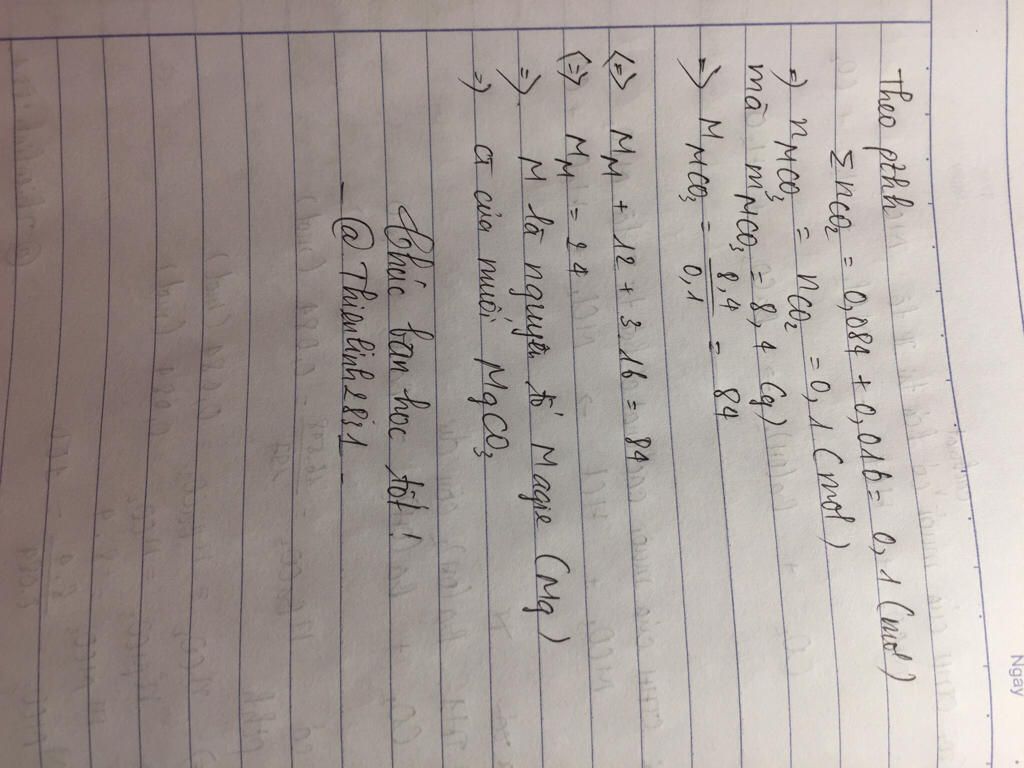 Ngày
Theo pthh
Σ nCO₂ = 0,084 + 0,016 = 0,1 (mol)
=) nMCO₃ = nCO₂ = 0,1 (mol)
mà mMCO₃ = 8,4 (g)
=) MMCO₃ = 8,4 / 0,1 = 84
(=) MM + 12 + 3.16 = 84
(=) MM = 24
=) M là nguyên tố Magie (Mg)
=) CT của muối MgCO₃
Chúc bạn học tốt!
- @Thienlinh28i1 -